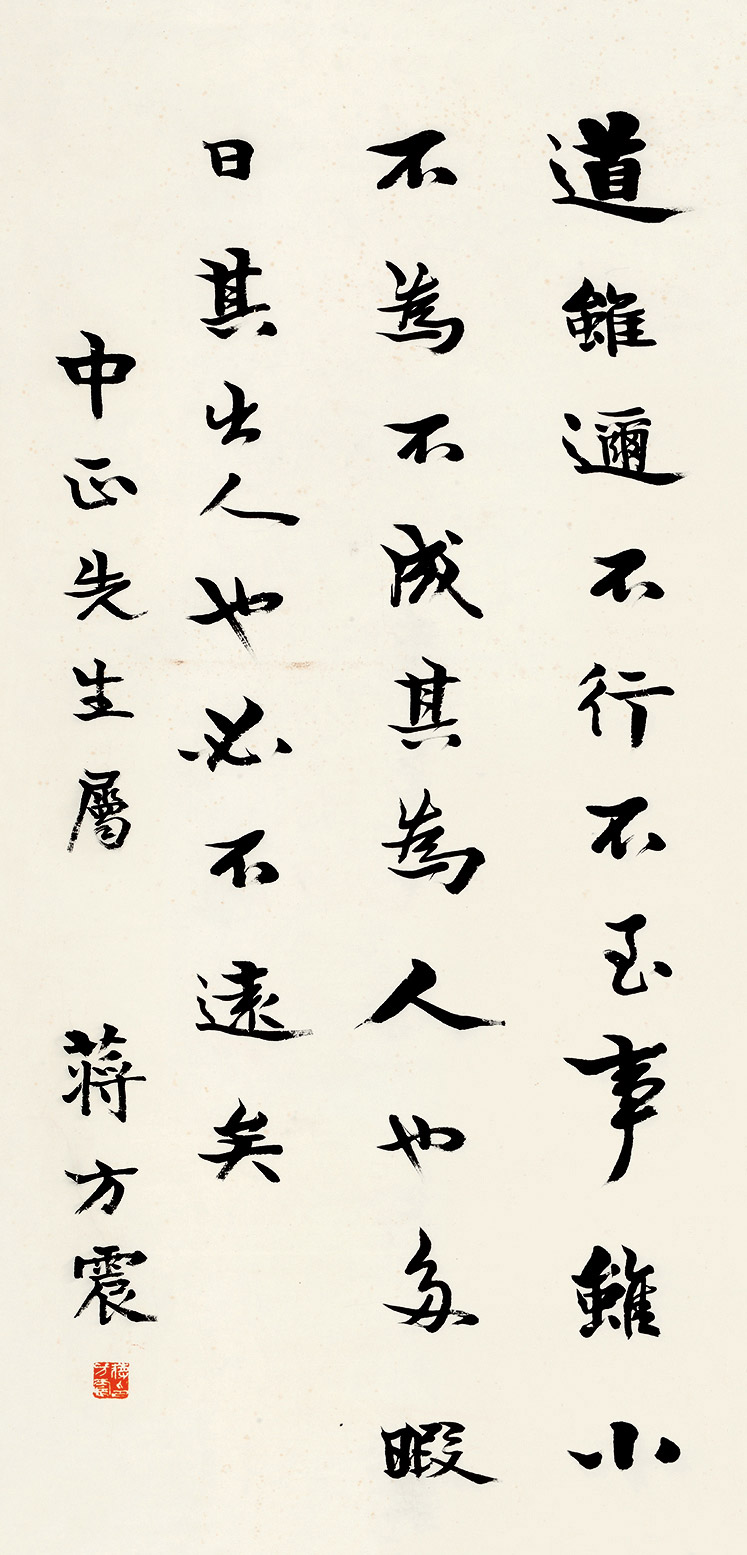 道雖邇不行不至事雖小
不為不成其為人也多暇
日其出人也必不遠矣
中正先生屬 蔣方震